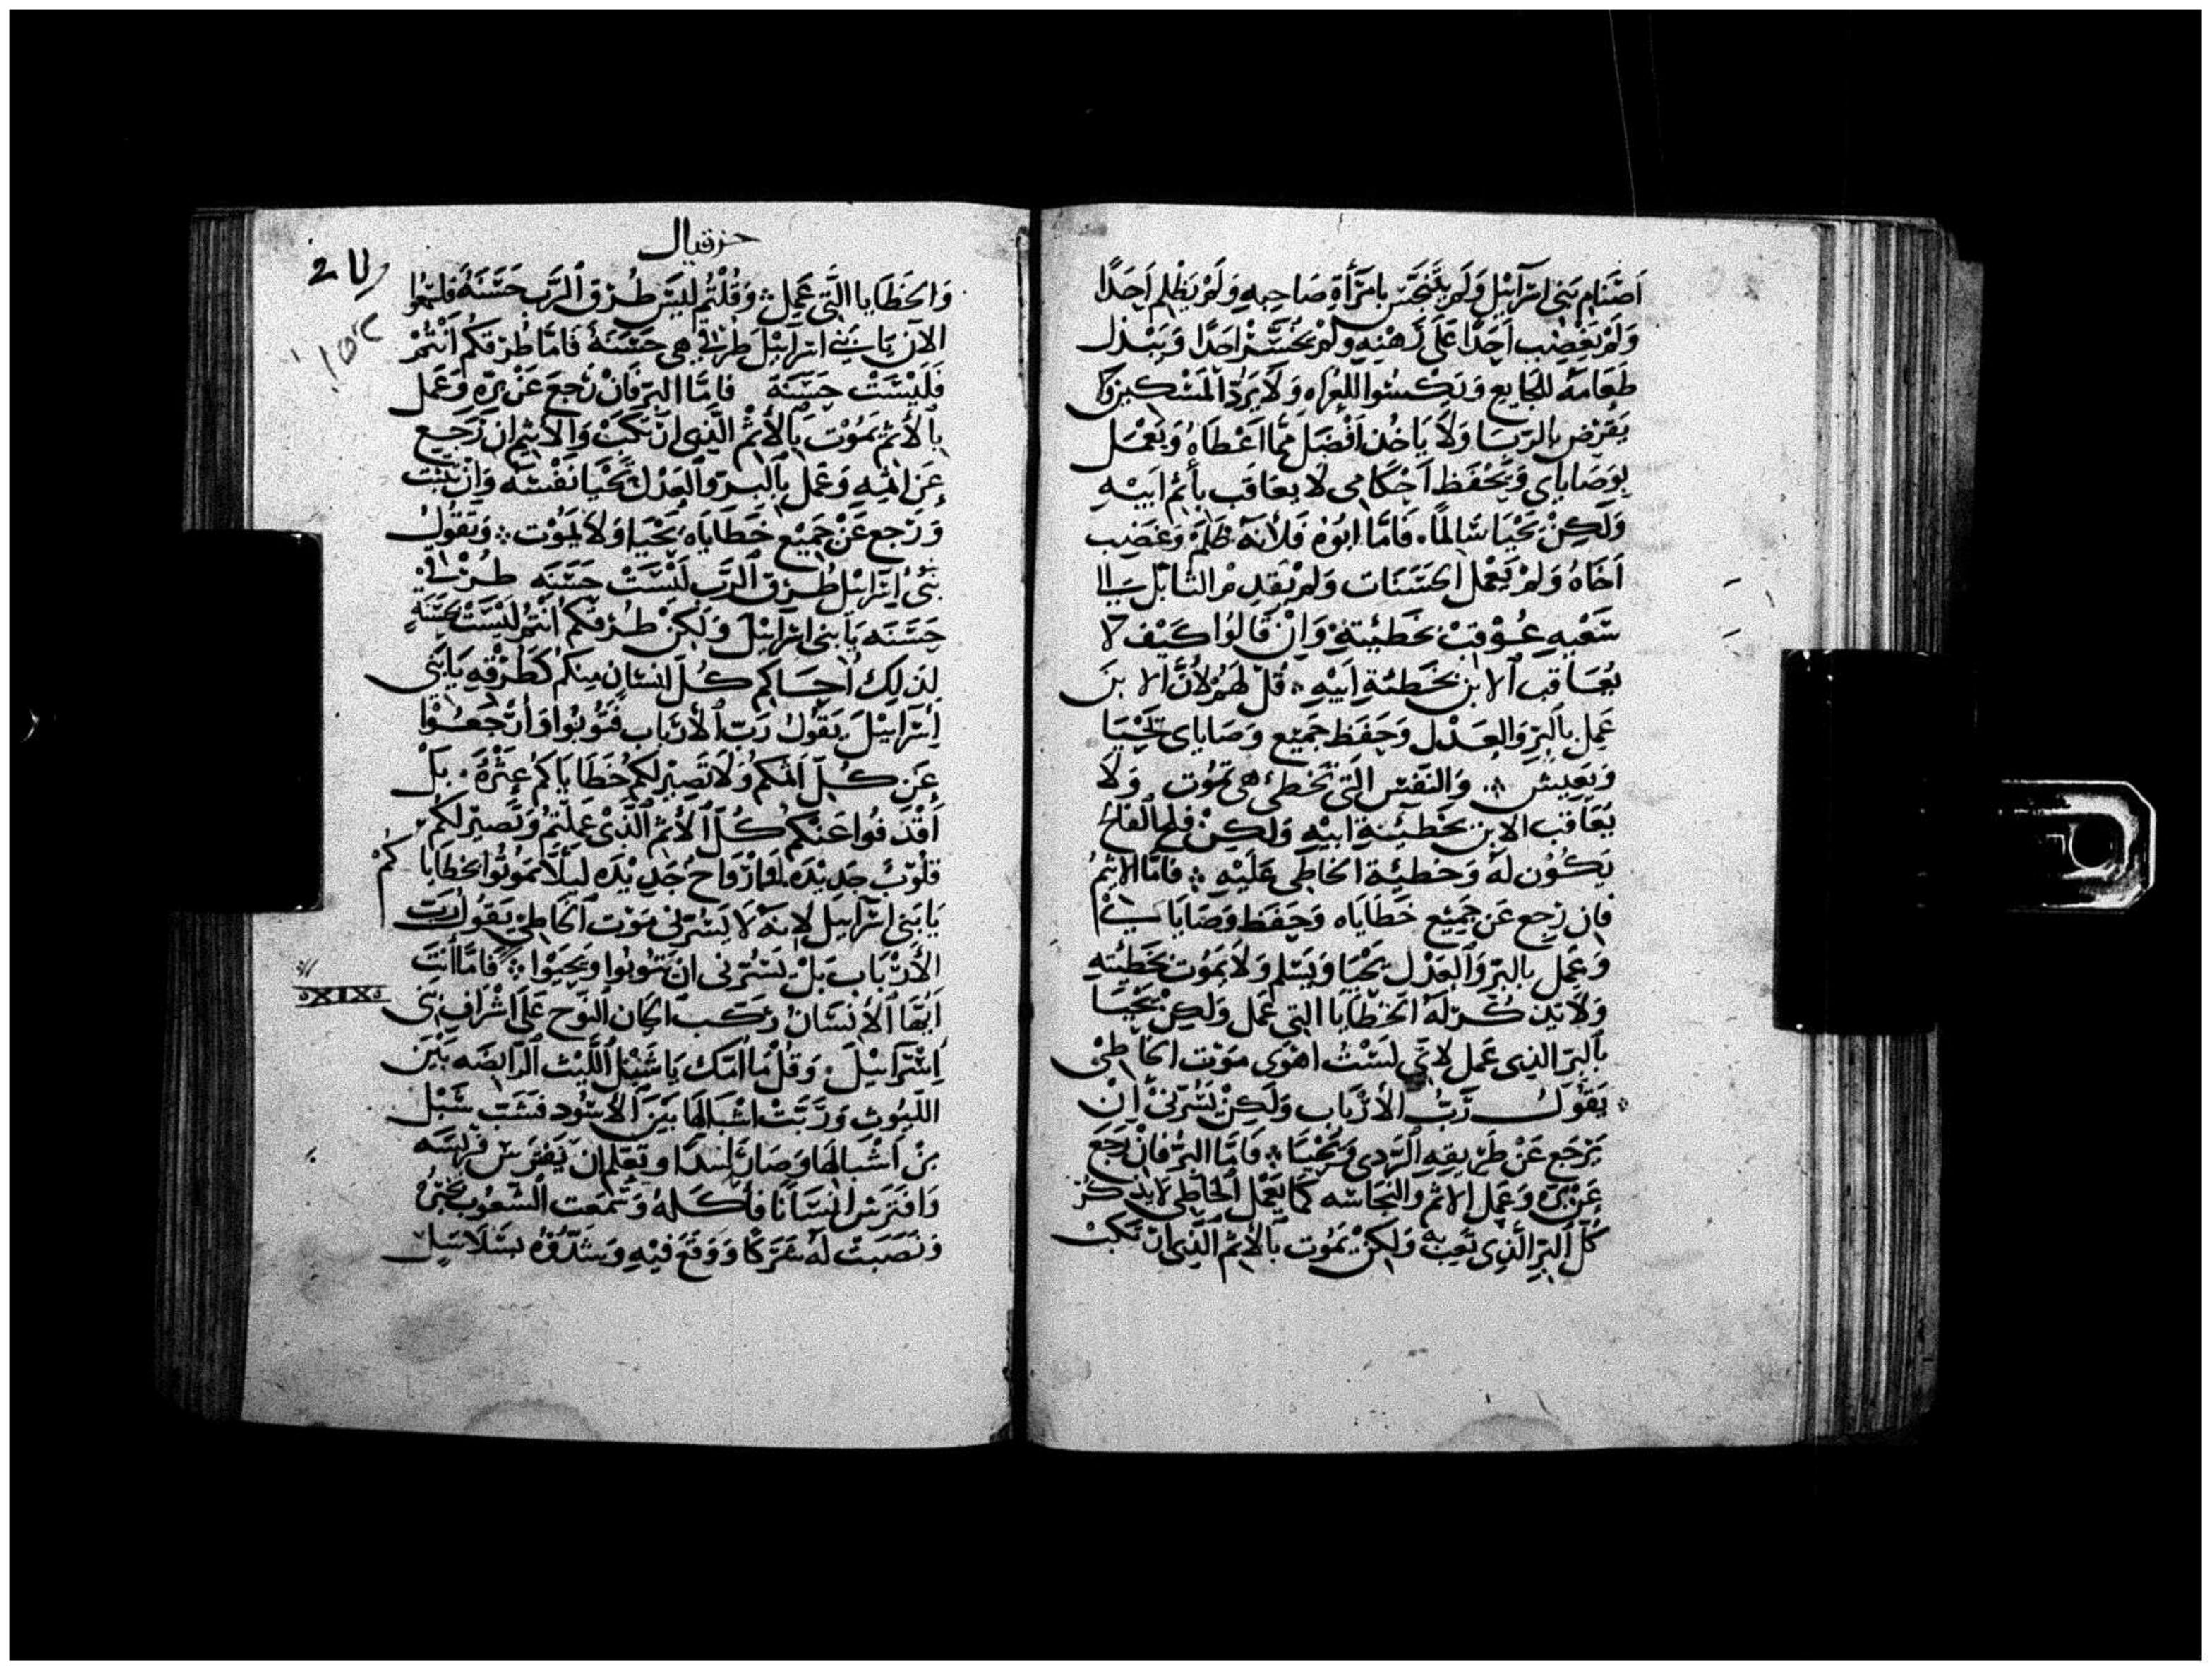 اَصْنَام بَنى اسَرآئيْل وَلَم يَتَنَجَسْ بِامَرَأَةِ صَاحِبهِ وَلَمْ يَظْلِم اَحَدًا
وَلَمْ يَغْضِب اَحَدًا عَلَى رَهْنِهِ وَلَمْ يُخُسَّرْ احَدًا وَيَبْذل
طَعَامَهُ للجَايع وَيَكْسُوا العُراه وَلاَ يَرَدّ المَسْكين وَلا
يَقْرض بالرّبَا وَلاَ يَاخُذ اَفْضَل ممَّا اَعْطَاهُ وَيَعْمَل
بِوَصَاياى وَيَحْفَظ اَحْكامى لا يعَاقَب بأثم اَبيْهِ
وَلَكِنْ يَحْيَا سَالِمًا، فَامَّا ابُوْهُ فَلأنَهُ ظلَمَ وَغصَب
اَخَاهُ وَلَمْ يَعْمل الحَسَنَات وَلَمْ يَقدِم
شَعْبِهِ عُوْقبْ بخَطيئتهِ وَانْ قَالوُا كَيْفَ لا
يُعَاقب الابن بخَطئة اَبيْهِ قُلْ لَهُمْ لأنَّ الابنَ
عَمِل بالبرّ وَالعَدْل وَحَفظ جَميْع وَصَاياى يَحْيَا
وَيَعيش وَالنَفْس الَتى تخطئ هى تموُت وَلاَ
يُعَاقَب الابن بخْطيئَة ابيْهِ وَلكنْ فلح الفَالح
يَكُوُن لهُ وَخطيئة الخاطى عَلَيْهِ فَامَّا الاثيمُ
فَان رَجع عَن جَميْع خَطَايَاه وَحَفظ وَصَايَا
وَعَمِل بالبرّ وَالعَدْل يَحْيَا وَيَسلم وَلاَ يَمُوْت بخَطيْتهِ
وَلاَ يذكُر لهُ الخطايَا التى عَمل وَلكِنْ يَحْيَا
بالبرّ الذى عَمل لانّى لسْتُ اهْوَى مَوْت الخاطئ
يَقُولُ رَبُّ الأرْبَاب وَلَكِنْ يَسُرّنىْ اَنْ
يَرْجَع عَنْ طَرْيقهِ الرَّدى وَيَحْيَا فَامَّا البرّ فانْ رَجَعَ
عَنْ برّهِ وَعَمل الاثم والنجَاسَه كَما يَعْمَل الخَاطى لا يذكُر
كُلّ البرّ الَّذِى تعِب بهِ وَلكِنْ يَمُوت بِالأثم الَّذِى ارْتَكَبْ
حزقيال
وَالخَطَايا الَّتى عَمِل وَقُلْتُمْ لَيسَ طُرق الرَّب حَسَنَهُ فَاسْمَعُوا
الآن يَا بَنى اسْرآئيْل طرُقى هى حَسَنَةُ فَامَّا طُرْقكُم أنتُمْ
فَلَيْسَتْ حَسَنَة فَامَّا البرّ فَانْ رَجعَ عَنْ برّهِ وَعَمل
بِالأثم يَمُوْت بِالأثم الَّذِى ارْتَكَبْ وَالأثيم ان رَجَع
عَنْ اثمهِ وَعَملَ بِالبرّ وَالعَدْل يُحْيَا نفْسَهُ وَانْ
وَرَجع عَنْ جَميْع خَطايَاه يَحْيَا وَلاَ يَموْت وَيَقُوُلُ
بَنىْ اسَرآئيل طُرْق الرَّب لَيْسَتْ حَسَنَه طُرْقى
حَسَنَه يَا بنى اسرآئيْل وَلكِنْ طُرْقكُم انتُم لَيْسَتْ حَسَنَةٍ
لذلِك اُحاكم كُلّ انسَانٍ مِنكُم كَطُرْقهِ يَا بَنى
اسَرآئيل يَقُولُ رَبّ الأرْبَاب فَتُوبُوا وَأرْجعُوْا
عَن كُلّ اثمكُم وَلاَ تَصيْر لكُم خَطَايَاكُم عَثْرَة بَل
اقْذفوُا عَنكُم كُلّ الأثم الَّذِى عَملتُم وَتَصيْر لكُم
قلوُبٌ جَديْدَه وَارْوَاحٌ جَديْدَه ليلاَّ تَموتُوا بخطايَاكُمْ
يَا بَنى اسرآئيل لانهُ لاَ يَسُرّنى مَوْت الخاطئ يَقُولُ رَبّ
الأرْبَاب بَلْ يَسُرّنى ان تَتوُبُوا وَتحيَوْا فامَّا أنتَ
اَيُّهَا الأنسَانُ عَلَى اشْرَافِ بَنى
اِسْرآئيْل وَقُلْ مَا امّك يَا شبْل اللَّيْث الرَّابضَه بَيْنَ
اللّيُوث وَرَبَّتْ اشْبَالهَا بَيْنَ الأُسُود فَشَبّ شبْل
منْ اَشْبالهَا وَصَار اسَدًا وَتعَلم انْ يَفترَسْ فَريْسَه
وَافترَسَ انْسَانًا فَأكَلهُ وَسَمَعت الشعُوْب بخبَرهُ
وَنَصَبَتْ لهُ شَرَكًا وَوَقعَ فيْهِ وَشَدُّوْهُ بسَلاَسَل
XIX